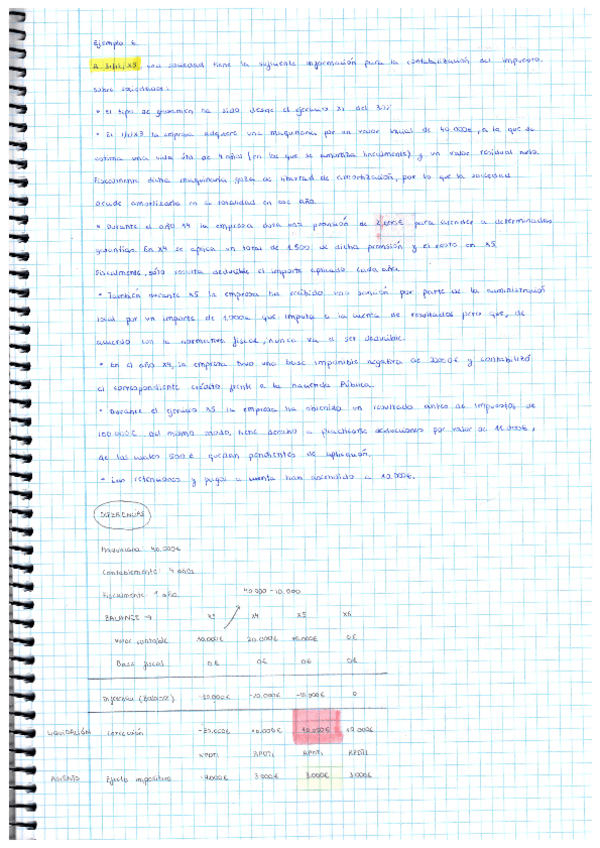 Ejemplo 6
A 31/12/X5, una sociedad tiene la siguiente información para la contabilización del impuesto
sobre sociedades:
• El tipo de gravamen ha sido desde el ejercicio X1 del 30%
• El 1/1/X3 la empresa adquiere una maquinaria por un valor inicial de 40.000€, a la que se
estima una vida útil de 4 años (en los que se amortiza linealmente) y un valor residual nulo.
Fiscalmente dicha maquinaria goza de libertad de amortización, por lo que la sociedad
decide amortizarla en su totalidad en ese año.
• Durante el año X4 la empresa dota una provisión de 2.000€ para atender a determinadas
garantías. En X4 se aplica un total de 1.500 de dicha provisión y el resto en X5.
Fiscalmente, sólo resulta deducible el importe aplicado cada año.
• También durante X5 la empresa ha recibido una sanción por parte de la administración
local por un importe de 1.000€ que imputa a la cuenta de resultados pero que, de
acuerdo con la normativa fiscal, nunca va a ser deducible.
• En el año X4, la empresa tuvo una base imponible negativa de € y contabilizó
el correspondiente crédito frente a la Hacienda Pública.
• Durante el ejercicio X5 la empresa ha obtenido un resultado antes de impuestos de
100.000€. Del mismo modo, tiene derecho a practicarse deducciones por valor de
de las cuales 500€ quedan pendientes de aplicación.
• Las retenciones y pagos a cuenta han ascendido a 10.000€.
DIFERENCIAS
Maquinaria: 40.000€
Contablemente: 4 años
Fiscalmente: 1 año 40.000-10.000
BALANCE → X3 X4 X5 X6
Valor contable 30.000€ 20.000€ 10.000€ 0€
Base fiscal 0€ 0€ 0€ 0€
Diferencia (Balance) -30.000€ -20.000€ -10.000€ 0
LIQUIDACIÓN Corrección -30.000€ 10.000€ 10.000€ 10.000€
APDTI RPDTI RPDTI RPDTI
ASIENTO Efecto impositivo -9.000€ 3.000€ 3.000€ 3.000€